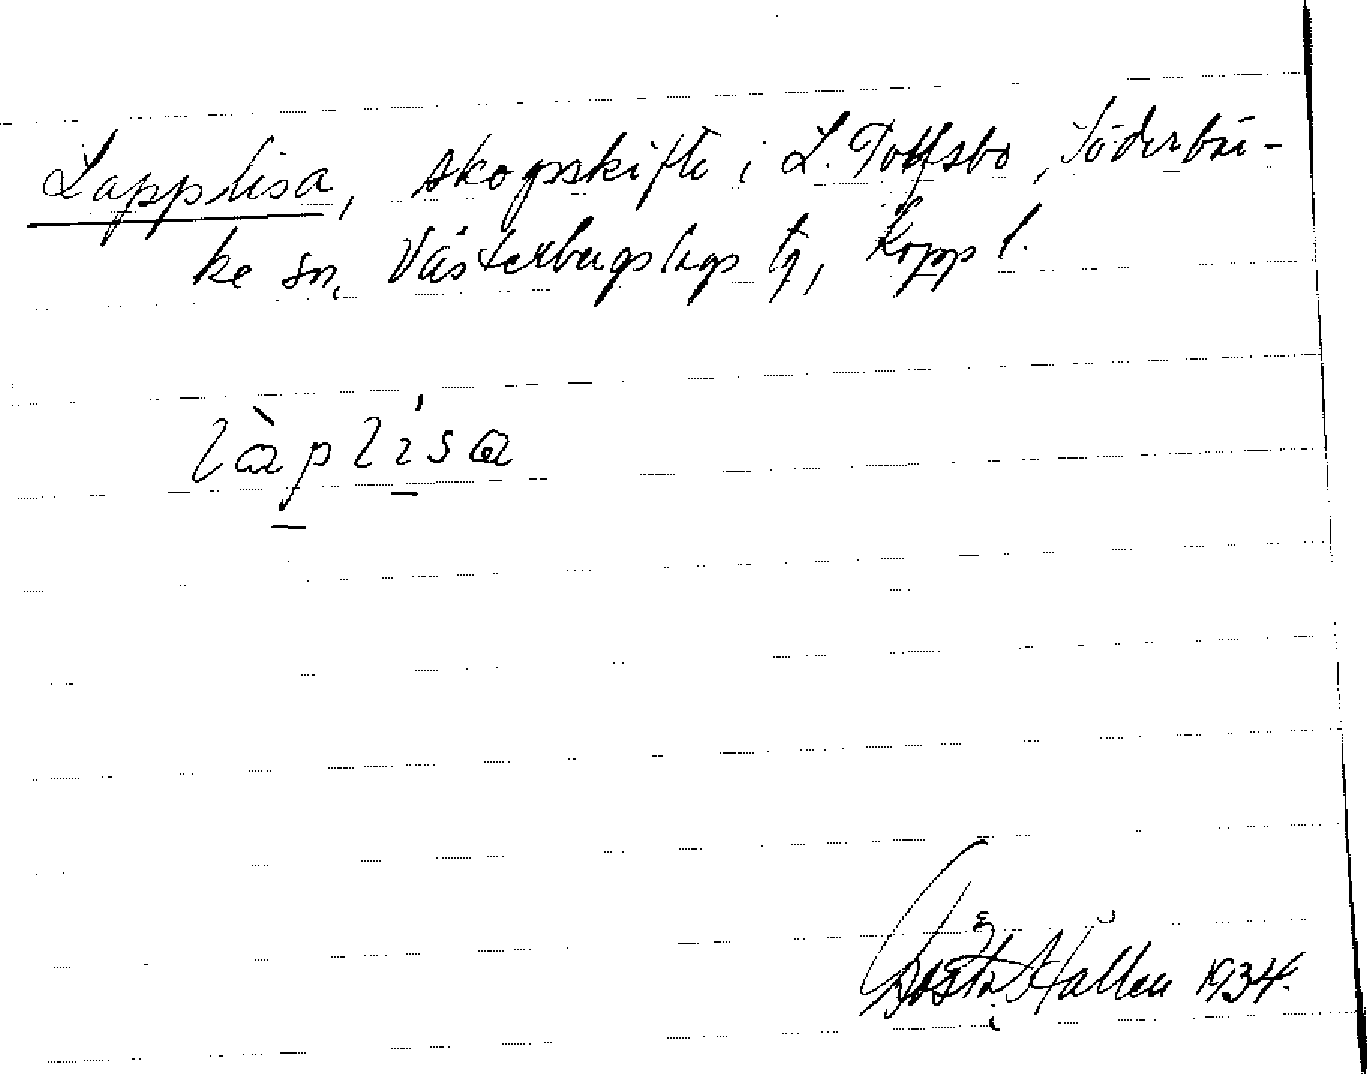 Lapplisa, skogsskifte i L. Tolfsbo, Söderbär-
ke sn, Västerbergslags tg, Kopp l.
làplisa
Gösta Hallén 1934.